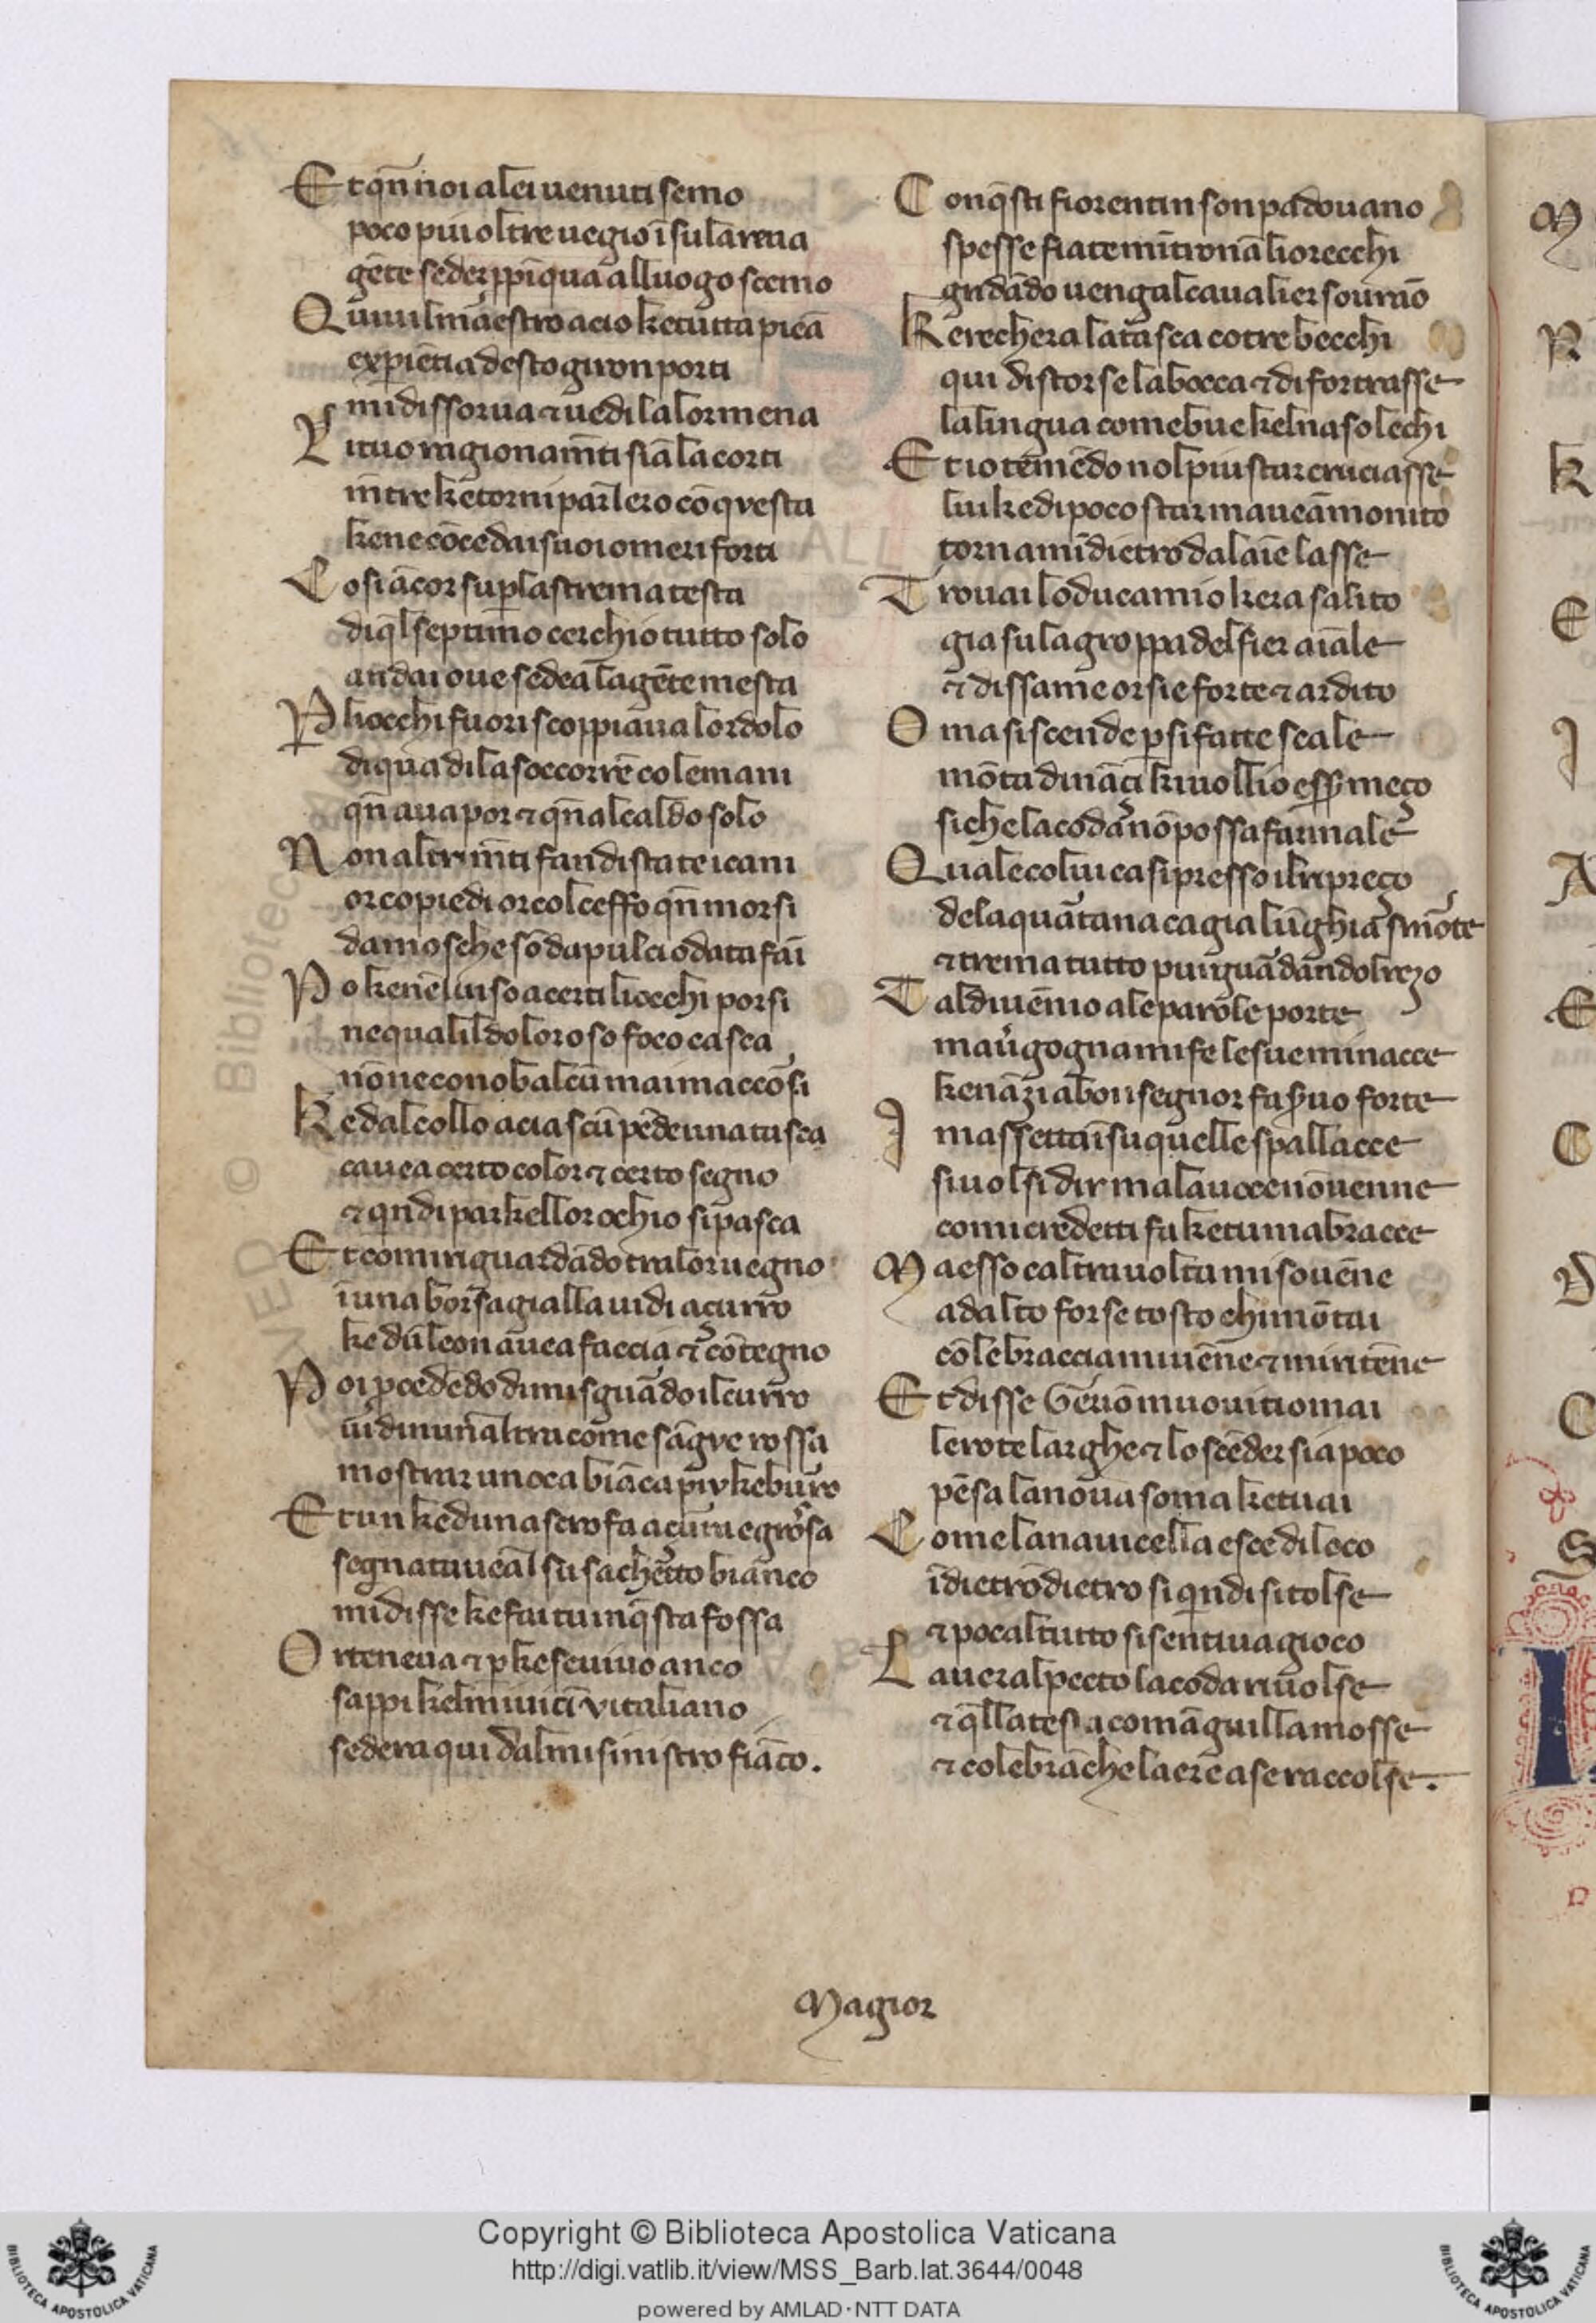 Et qn̄ noi a lei uenuti semo
poco piu oltre uegio ī su la rena
gēte seder ꝓpīqua al luogo scemo
Quiui l maestro acio ke tutta piēa
exꝑiētia desto giron porti
mi disse or ua ⁊ uedi la lor mena
Li tuo ragionam̄ti siā la corti
mtre ke torni parlero cō questa
ke ne cōceda i suoi omeri forti
Cosi ācor su ꝑ la strema testa
di ql̄ septimo cerchio tutto solo
andai oue sedea la gēte mesta
Ꝑ liocchi fuori scoppiaua lor dolo
di qua di la soccorrē co le mani
qn̄ a uapor ⁊ qn̄ al caldo solo
Non altrim̄ti fan distate i cani
or co piedi or col ceffo qn̄ morsi
da mosche sō da pulci o da tafāi
Po ke nel uiso a certi liocchi porsi
ne quali l doloroso foco casca
nō ne conobbi alcū ma i maccorsi
Ke dal collo a ciascū pēdea una tasca
cauea certo color ⁊ certo segno
⁊ qndi par kel lor ochio si pasca
Et com riguardādo tra lor uegno
ī una borsa gialla uidi açurro
ke dū leon auea faccia ⁊ cōtegno
Poi ꝓcedēdo di mi sguādo il curro
uidi mun altra come sāgue rossa
mostrar un oca biāca piu ke burro
Et un ke duna scrofa açurra e grossa
segnato auea l su sachetto bianco
mi disse ke fai tu in q̄sta fossa
Or te ne ua ⁊ ꝑ ke se uiuo anco
sappi kel mi uicī vitaliano
sedera qui dal mi sinistro fiāco.
Con q̄sti fiorentin son padouano
spesse fiate mītronā liorecchi
gridādo uenga l caualier sourāo
Ke rechera la tasca co tre becchi
qui distorse la bocca ⁊ di for trasse
la lingua come bue kel naso lechi
Et io temēdo nol piu star cruciasse
lui ke di poco star mauea āmonito
tornami dietro da laīe lasse
Trouai lo duca mio kera salito
gia su la groppa del fier aīale
⁊ dissa me or sie forte ⁊ ardito
Oma si scende ꝑ si fatte scale
mōta dināci ki uollio esser meço
si che la coda nō possa far male
Quale colui ca si presso il ripreço
de la quātana ca gia lūghia smōte
⁊ trema tutto pur guādando l reço
Tal diuēnio a le parole porte
ma u̓gogna mi fe le sue minacce
ke nāzi a bon segnor fa s̓uo forte
I massettai su quelle spallacce
si uolsi dir ma la uoce nō uenne
com i credetti fa ke tu mabracce
Ma esso caltra uolta mi souēne
ad alto forse tosto chi mōtai
cō le braccia mauēne ⁊ mi ritēne
Et disse Geriō muouiti omai
le rote larghe ⁊ lo scēder sia poco
pēsa la noua soma ke tu ai
Come la nauicella esce di loco
ī dietro dietro si qndi si tolse
⁊ po cal tutto si sentiua gioco
La uera l pecto la coda riuolse
⁊ q̄lla tesa com āguilla mosse
⁊ co le brāche laere a se raccolse.
Magior
Copyright © Biblioteca Apostolica Vaticana
http://digi.vatlib.it/view/MSS_Barb.lat.3644/0048
powered by AMLAD·NTT DATA